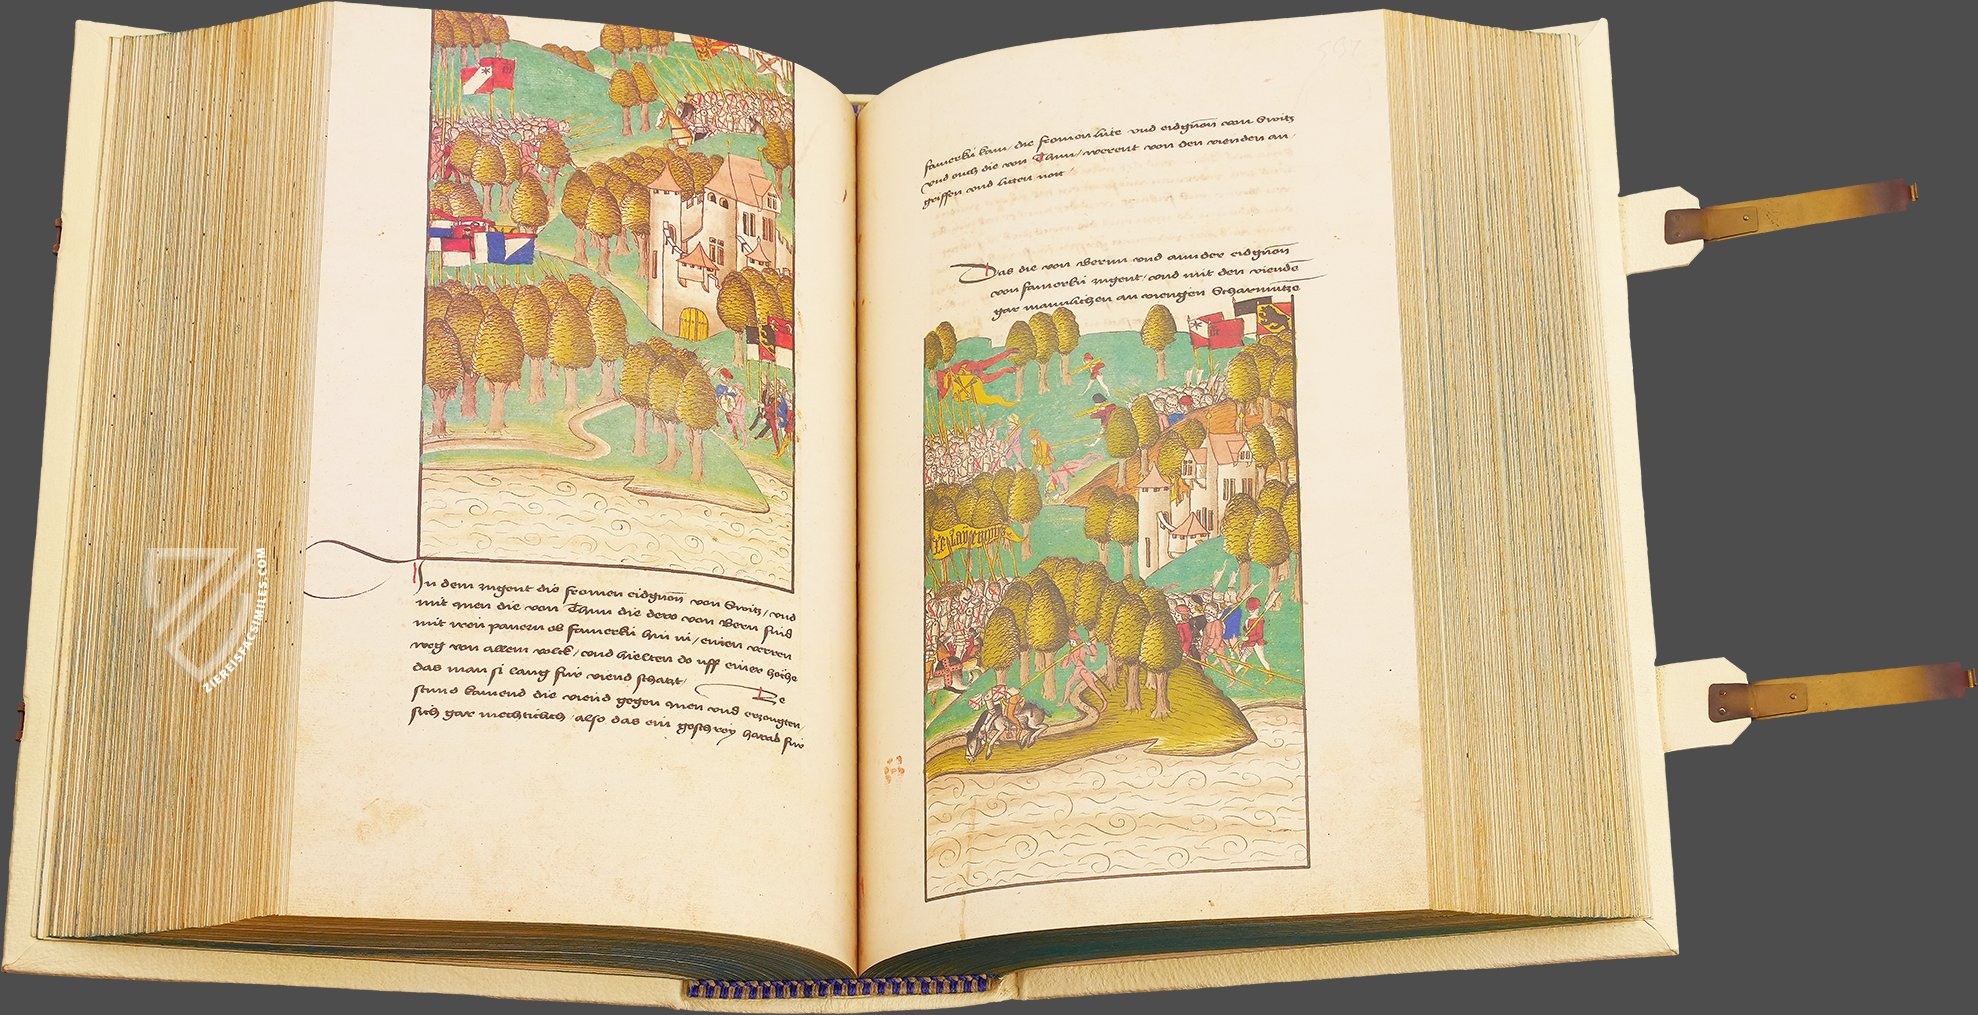 In dem zugent die fromen eidgnoss von Switz, und
mit inen die von Thun die dero von Bern sind
mit iren panern ob famerkü hin in, einen verren
weg von allem volck, und hielten do uff einer höhe
das man si lang für viend schatzt. De
stund kamend die viend gegen inen und erzougten
sich gar mechtiklich, also das ein geschrey harab für
famerkü kam, die fromen lüte und eidgnossen von Switz
und ouch die von Thun, werent von den vienden an
griffen und litten not
Das die von Bernn und annder eidgnossen
von famerkü zugent, und mit den viende
gar mannlichen an viengen Scharmütze
ZIEREISFACSIMILES.COM